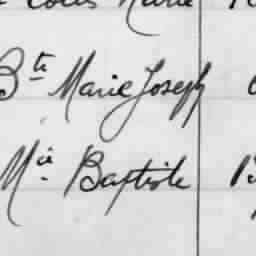 Marie
Bte Marie Joseph
Mie Baptiste